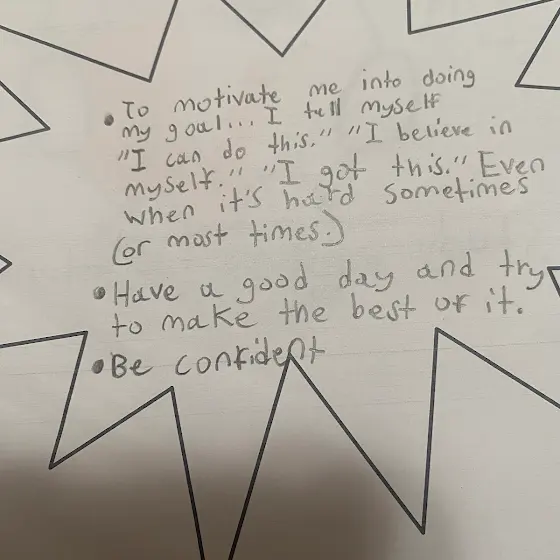 • To motivate me into doing
my goal... I tell myself
"I can do this." "I believe in
myself." "I got this." Even
when it's hard sometimes
(or most times.)
• Have a good day and try
to make the best of it.
• Be confident